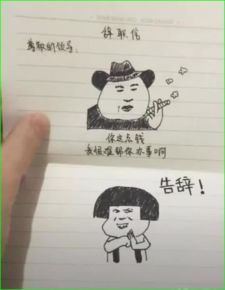 辞职信
尊敬的领导:
你这点钱
我很难帮你办事啊
告辞!